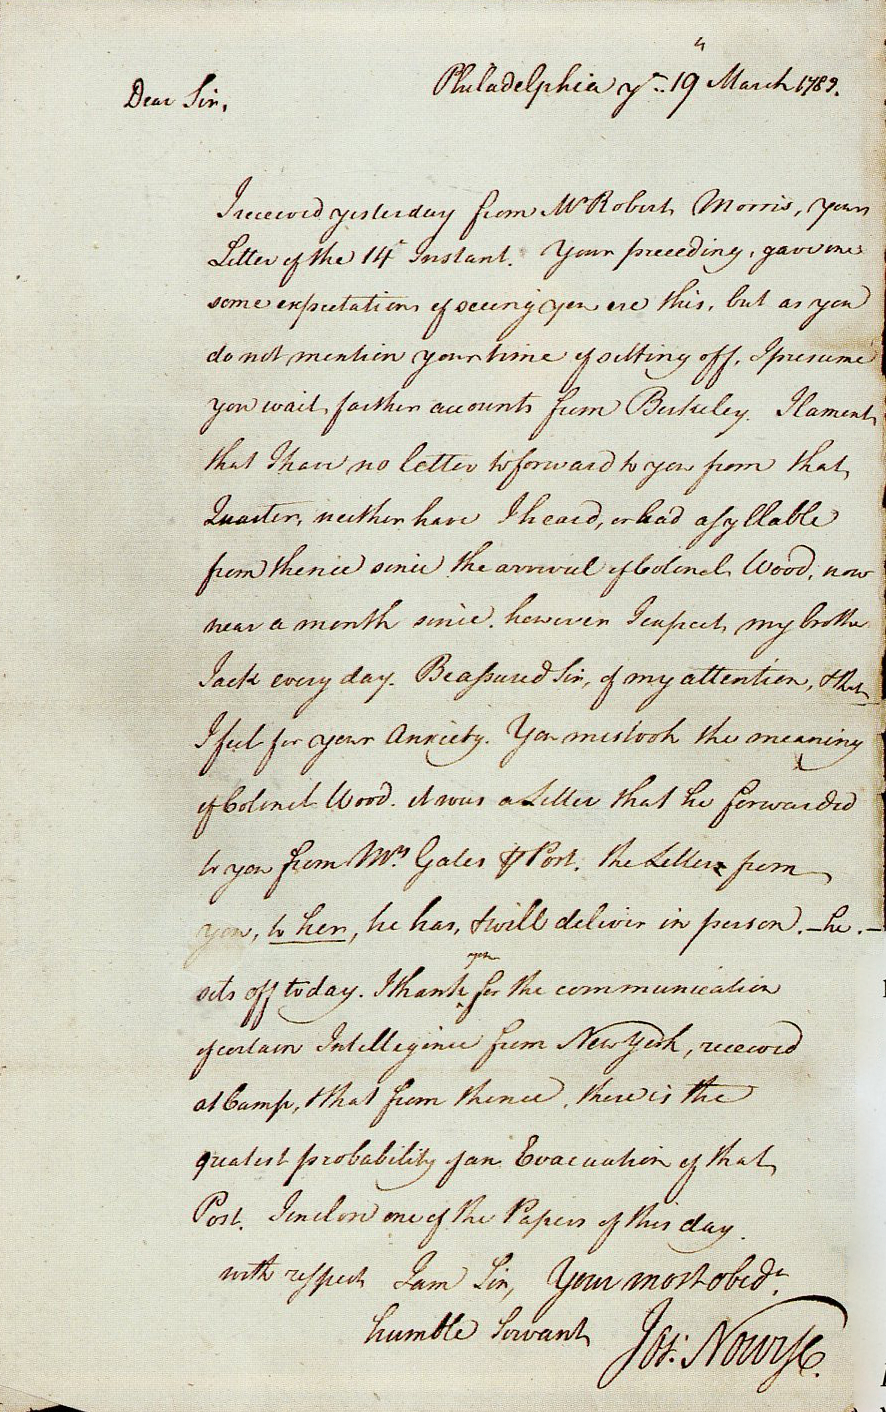 Philadelphia ye.. 19th March 1782.
Dear Sir,
I received yesterday from Mr Robert Morris, your
Letter of the 14th Instant. Your preceeding, gave me
some expectations of seeing you ere this, but as you
do not mention your time of setting off, I presume
you wait farther accounts from Berkeley. I lament
that I have no letter to forward to you from that
Quarter, neither have I heard, or had a syllable
from thence since the arrival of Colonel Wood, now
near a month since. however I expect my brother
Jack every day. Be assured Sir, of my attention, & that
I feel for your Anxiety. You mistook the meaning
of Colonel Wood. it was a Letter that he forwarded
to you from Mrs Gates Post. the Letter from
you, to her, he has, & will deliver in person. — he. —
sets off today. I thank you for the communication
of certain Intelligence from New York, received
at Camp, & that from thence, there is the
greatest probability of an Evacuation of that
Post. I inclose one of the Papers of this day.
with respect I am Sir, Your most obedt.
humble Servant Jos: Nourse.